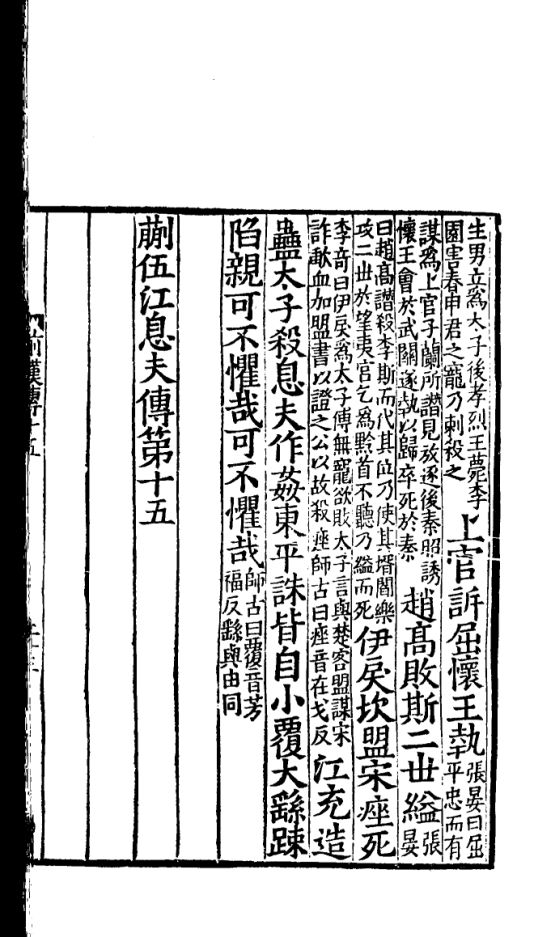 生男立爲太子後孝烈王薨李園害春申君之寵乃刺殺之上官訴屈懷王執張晏曰屈平忠而有
謀爲上官子蘭所譖見放逐後秦昭誘懷王會於武關遂執以歸卒死於秦趙髙敗斯二世縊張晏
曰趙髙譖殺李斯而代其位乃使其壻閻樂攻二世於望夷宫乞爲黔首不聽乃縊而死伊戾坎盟宋痤死
李竒曰伊戾爲太子傅無寵欲敗太子言與楚客盟謀宋詐歃血加盟書以證之公以故殺痤師古曰痤音在戈反江充造
蠱太子殺息夫作姦東平誅皆自小覆大繇踈
陷親可不懼哉可不懼哉師古曰覆音芳福反繇與由同
蒯伍江息夫傳第十五
前漢傳十五